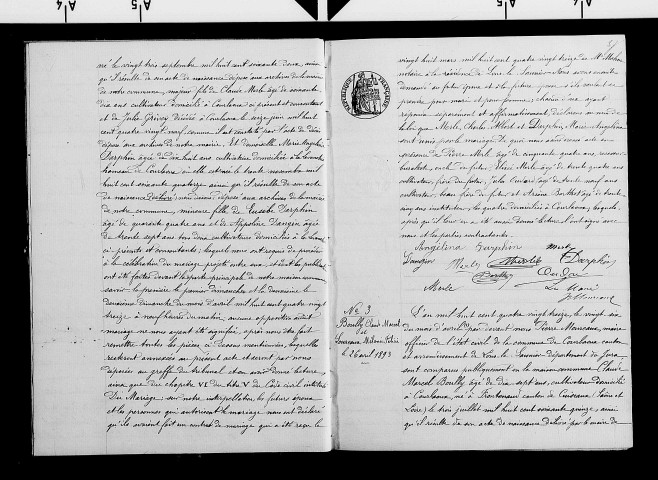 né le vingt trois septembre mil huit cent soixante deux, ainsi
qu'il résulte de son acte de naissance déposé aux archives de la mairie
de notre commune, majeur fils de Claude Merle âgé de soixante
dix ans cultivateur domicilié à Courlaoux ci présent et consentant
et de Julie Grivey décédée à Courlaoux le seize juin mil huit
cent quatre vingt neuf, comme il est constaté par l'acte de décès
déposé aux archives de notre mairie. Et demoiselle Marie Angelina
Darphin âgée de dix huit ans cultivatrice domiciliée à
Courlaoux où elle est née le trente novembre mil
huit cent soixante quatorze ainsi qu'il résulte de son acte
de naissance déposé aux archives de la mairie
de notre commune, mineure fille de Eusèbe Darphin
âgé de quarante quatre ans et de Appoline Dangin âgée
de trente sept ans tous deux cultivateurs domiciliés à
ci présents et consentants; lesquels nous ont requis de procéder
à la célébration du mariage projeté entre eux, et dont les publications
ont été faites devant la porte principale de notre maison commune
savoir la première le premier dimanche et la deuxième le
deuxième dimanche du mois d'avril mil huit cent quatre vingt
treize à neuf heures du matin, aucune opposition audit
mariage ne nous ayant été signifiée, après nous être fait
remettre toutes les pièces ci dessus mentionnées, lesquelles
resteront annexées au présent acte et seront par nous
déposées au greffe du tribunal et en avoir donné lecture
ainsi que du chapitre VI du titre V du Code civil intitulé
Du Mariage, sur notre interpellation les futurs époux
et les personnes qui autorisent le mariage nous ont déclaré
qu'ils avaient fait un contrat de mariage qui a été reçu le
vingt huit mars mil huit cent quatre vingt treize de Mr
notaire à la résidence de Lons le Saunier. Nous avons ensuite
demandé au futur époux et à la future épouse s'ils veulent se
prendre pour mari et pour femme; chacun d'eux ayant
répondu séparément et affirmativement, déclarons au nom de
la loi que Merle, Charles Albert et Darphin Marie Angelina
sont unis par le mariage. De quoi nous avons dressé acte en
présence de Pierre Merle âgé de cinquante quatre ans,
oncle du futur, Elisée Merle âgé de trente quatre ans
cultivateur, frère du futur, Jule âgé de trente neuf ans
cultivateur beau frère du futur et Arsène Berthet âgé de trente
ans instituteur, les quatre domiciliés à Courlaoux; lesquels,
après qu'il leur en a été aussi donné lecture l'ont signé avec
nous et les parties contractantes.
Angélina Darphin
Dangin Merle Merle E. Darphin
Merle Le Maire
N° 3
Bouilly Claude Marcel
et
le 26 avril 1893
L'an mil huit cent quatre vingt treize, le vingt six
du mois d'avril, par devant nous Pierre, maire
officier de l'état civil de la commune de Courlaoux canton
et arrondissement de Lons le Saunier département du Jura
sont comparus publiquement en la maison commune Claude
Marcel Bouilly âgé de dix sept ans, cultivateur domicilié
à Courlaoux, né à Frontenaud canton de Cuiseaux (Saône et
Loire) le trois juillet mil huit cent soixante quinze, ainsi
qu'il résulte de son acte de naissance délivré par le maire de